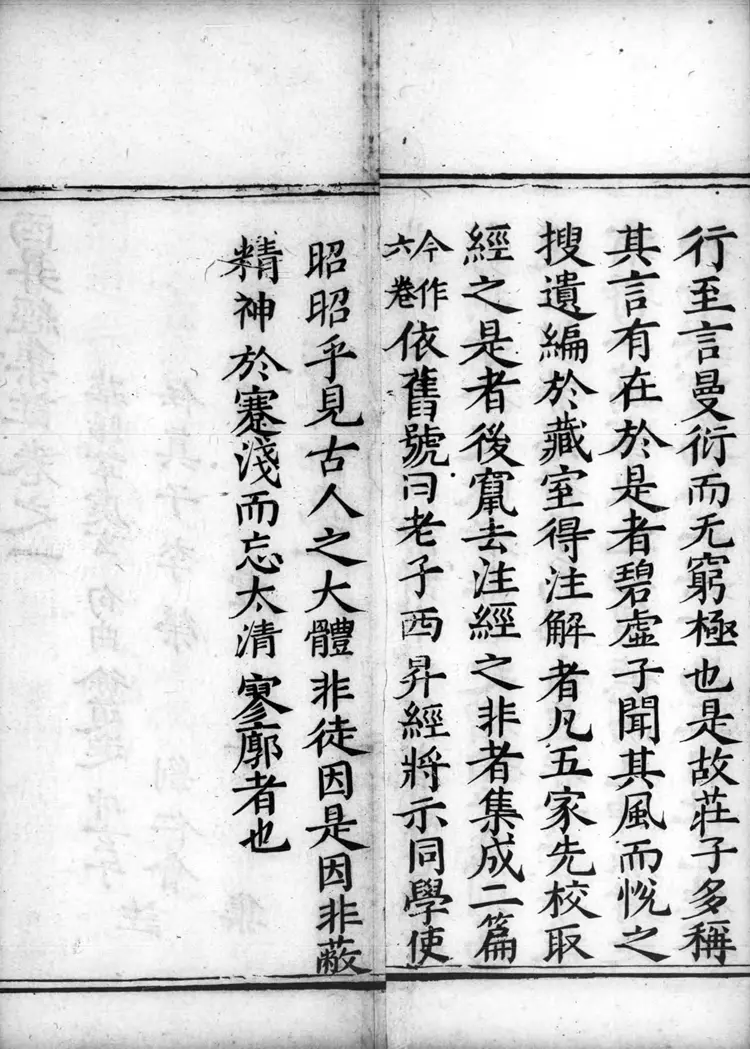 行至言曼衍而无窮極也是故莊子多稱
其言有在於是者碧虛子聞其風而悅之
搜遺編於藏室得注解者凡五家先校取
經之是者後竄去注經之非者集成二篇
今作
六卷
依舊號曰老子西昇經將示同學使
昭昭乎見古人之大體非徒因是因非蔽
精神於蹇淺而忘太清寥廓者也